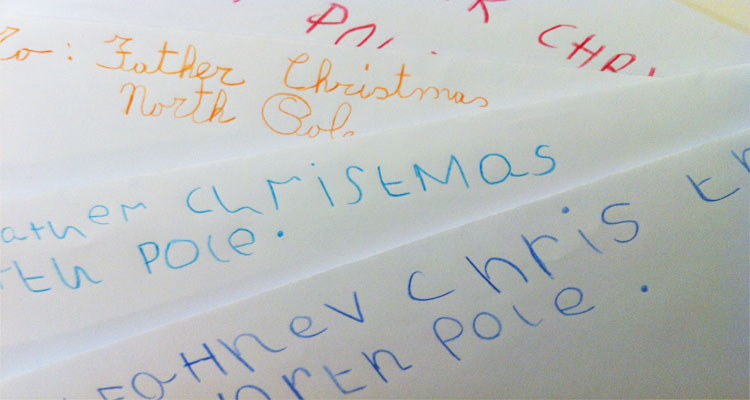 CHRI
To: Father Christmas
North Pole
ather christmas
rth pole.
FaHhev chris t
orth pole.